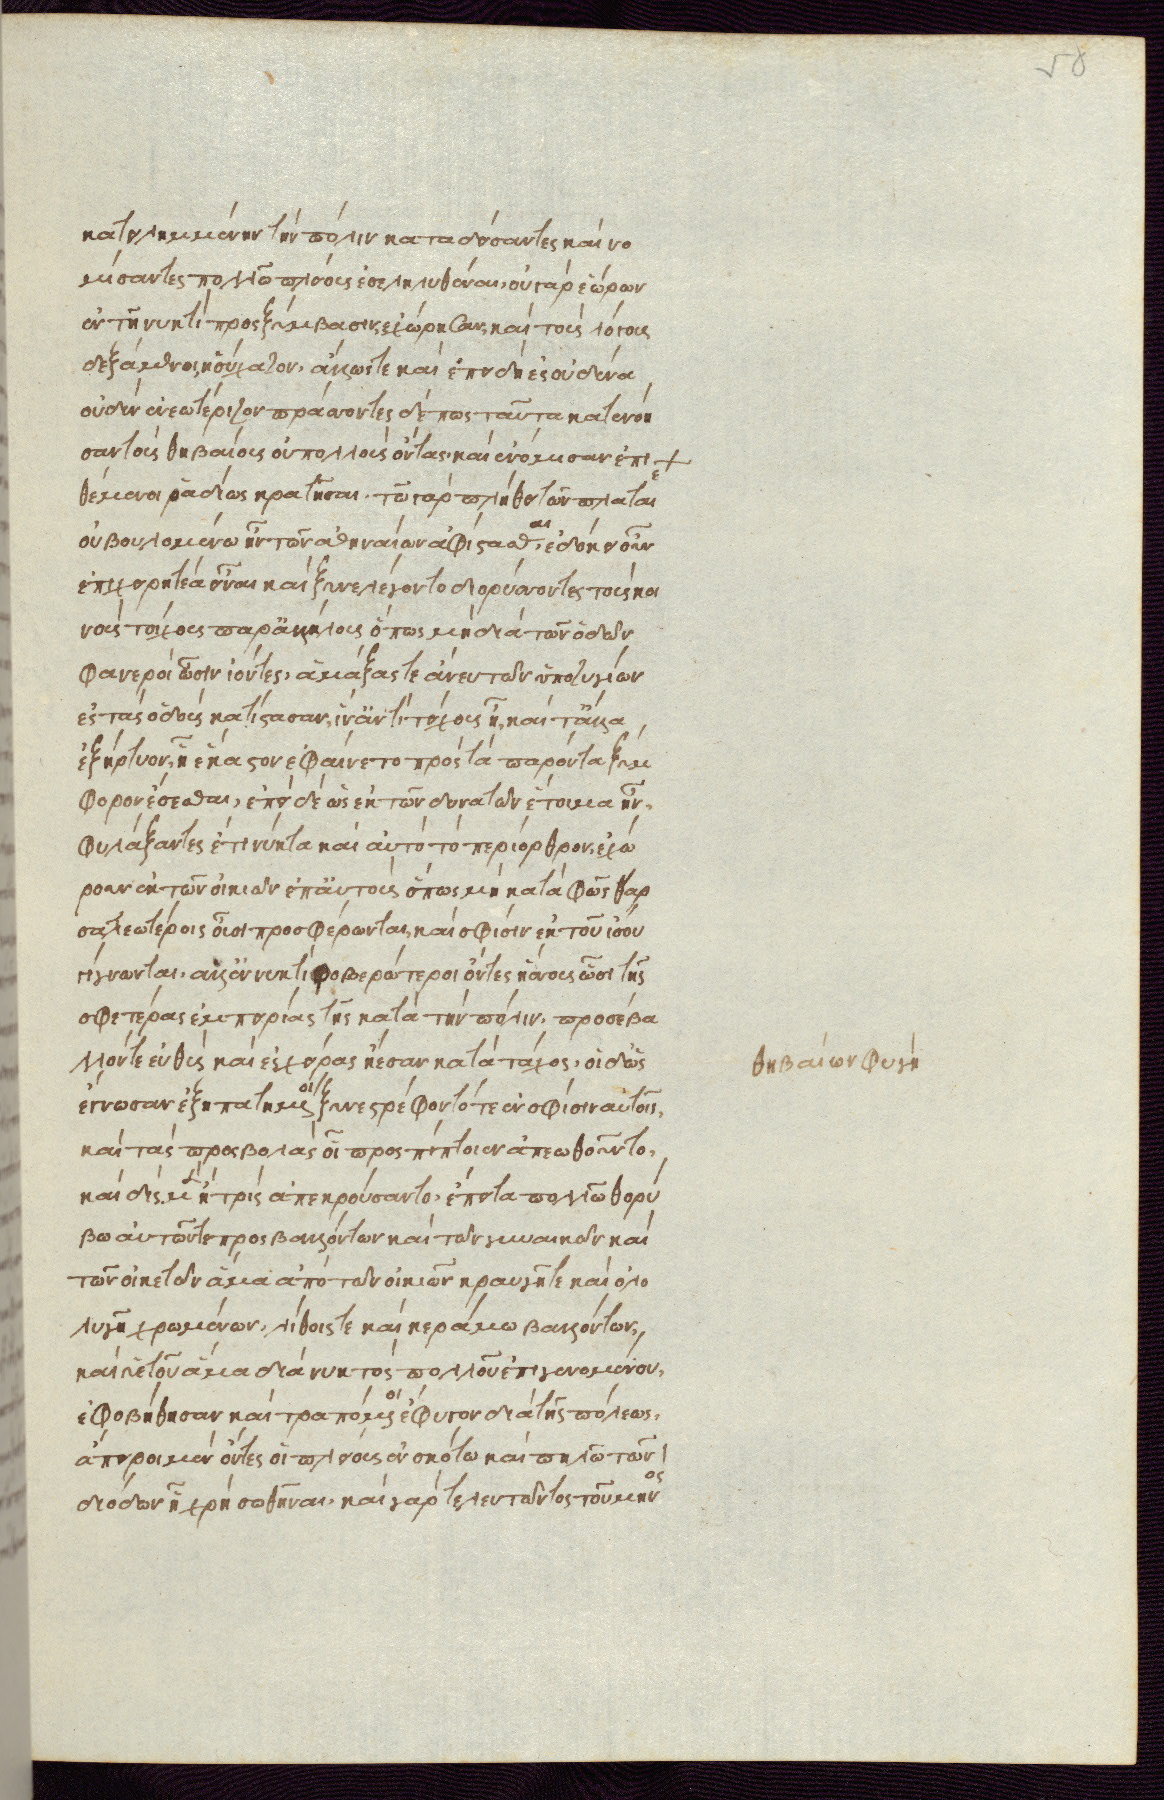 58
κατειλημμένην τὴν πόλιν καταδείσαντες καὶ νο
μίσαντες πολλῶ πλείους ἐσεληλυθέναι, οὐ γὰρ ἑώρων
ἐν τῆ νυκτί· πρὸς ξύμβασιν ἐχώρησαν, καὶ τοὺς λόγους
δεξάμενοι, ἡσύχαζον, ἄλλως τε καὶ ἐπειδὴ ἐς οὐδένα
οὐδὲν ἐνεωτέριζον πράσσοντες δέ πως ταῦτα κατενόη
σαν τοὺς θηβαίους οὐ πολλοὺς ὄντας· καὶ ἐνόμισαν ἐπι
θέμενοι ῥαδίως κρατῆσαι. τῶ γὰρ πλήθει τῶν πλαταιέ
ου βουλομένω ἦν τῶν ἀθηναίων ἀφίστασθαι, ἐδόκει οὖν
ἐπιχειρητέα εἶναι καὶ ξυνελέγοντο διορύσσοντες τοὺς κοι
νοὺς τοίχους παρ' ἀλλήλους ὅπως μὴ διὰ τῶν ὁδῶν
φανεροὶ ὦσιν ἰόντες, ἁμάξας τε ἄνευ τῶν ὑποζυγίων
ἐς τὰς ὁδοὺς κατίστασαν, ἵν' ἀντὶ τείχους ἦ, καὶ τἄλλα
ἐξήρτυον, ἧ ἕκαστον ἐφαίνετο πρὸς τὰ παρόντα ξύμ
φορον ἔσεσθαι, ἐπεὶ δὲ ὡς ἐκ τῶν δυνατῶν ἕτοιμα ἦν,
φυλάξαντες ἔτι νύκτα καὶ αὐτὸ τὸ περίορθρον, ἐχώ
ρουν ἐκ τῶν οἰκιῶν ἐπ' αὐτοὺς ὅπως μὴ κατὰ φῶς θαρ
σαλεωτέροις οὖσι προσφέρωνται, καὶ σφίσιν ἐκ τοῦ ἴσου
γίγνωνται, ἀλλ' ἐν νυκτὶ φοβερώτεροι ὄντες ἥσσους ὦσι τῆς
σφετέρας ἐμπειρίας τῆς κατὰ τὴν πόλιν, προσέβα
λλόν τε εὐθὺς καὶ ἐς χεῖρας ἤεσαν κατὰ τάχος, οἱ δ' ὡς
ἔγνωσαν ἐξηπατημένοι ξυνεστρέφοντό τε ἐν σφίσιν αὐτοῖς,
καὶ τὰς προσβολὰς ἧ προσπίπτοιεν ἀπεωθοῦντο,
καὶ δὶς μὲν ἢ τρὶς ἀπεκρούσαντο, ἔπειτα πολλῶ θορύ
βω αὐτῶν τε προσβαλλόντων καὶ τῶν γυναικῶν καὶ
τῶν οἰκετῶν ἅμα ἀπὸ τῶν οἰκιῶν κραυγῆ τε καὶ ὀλο
λυγῆ χρωμένων, λίθοις τε καὶ κεράμω βαλλόντων,
καὶ ὑετοῦ ἅμα διὰ νυκτὸς πολλοῦ ἐπιγενομένου,
ἐφοβήθησαν καὶ τραπόμενοι ἔφυγον διὰ τῆς πόλεως,
ἄπειροι μὲν ὄντες οἱ πλείους ἐν σκότω καὶ πηλῶ τῶν
διόδων ἧ χρὴ σωθῆναι, καὶ γὰρ τελευτῶντος τοῦ μηνὸς
θηβαίων φυγή